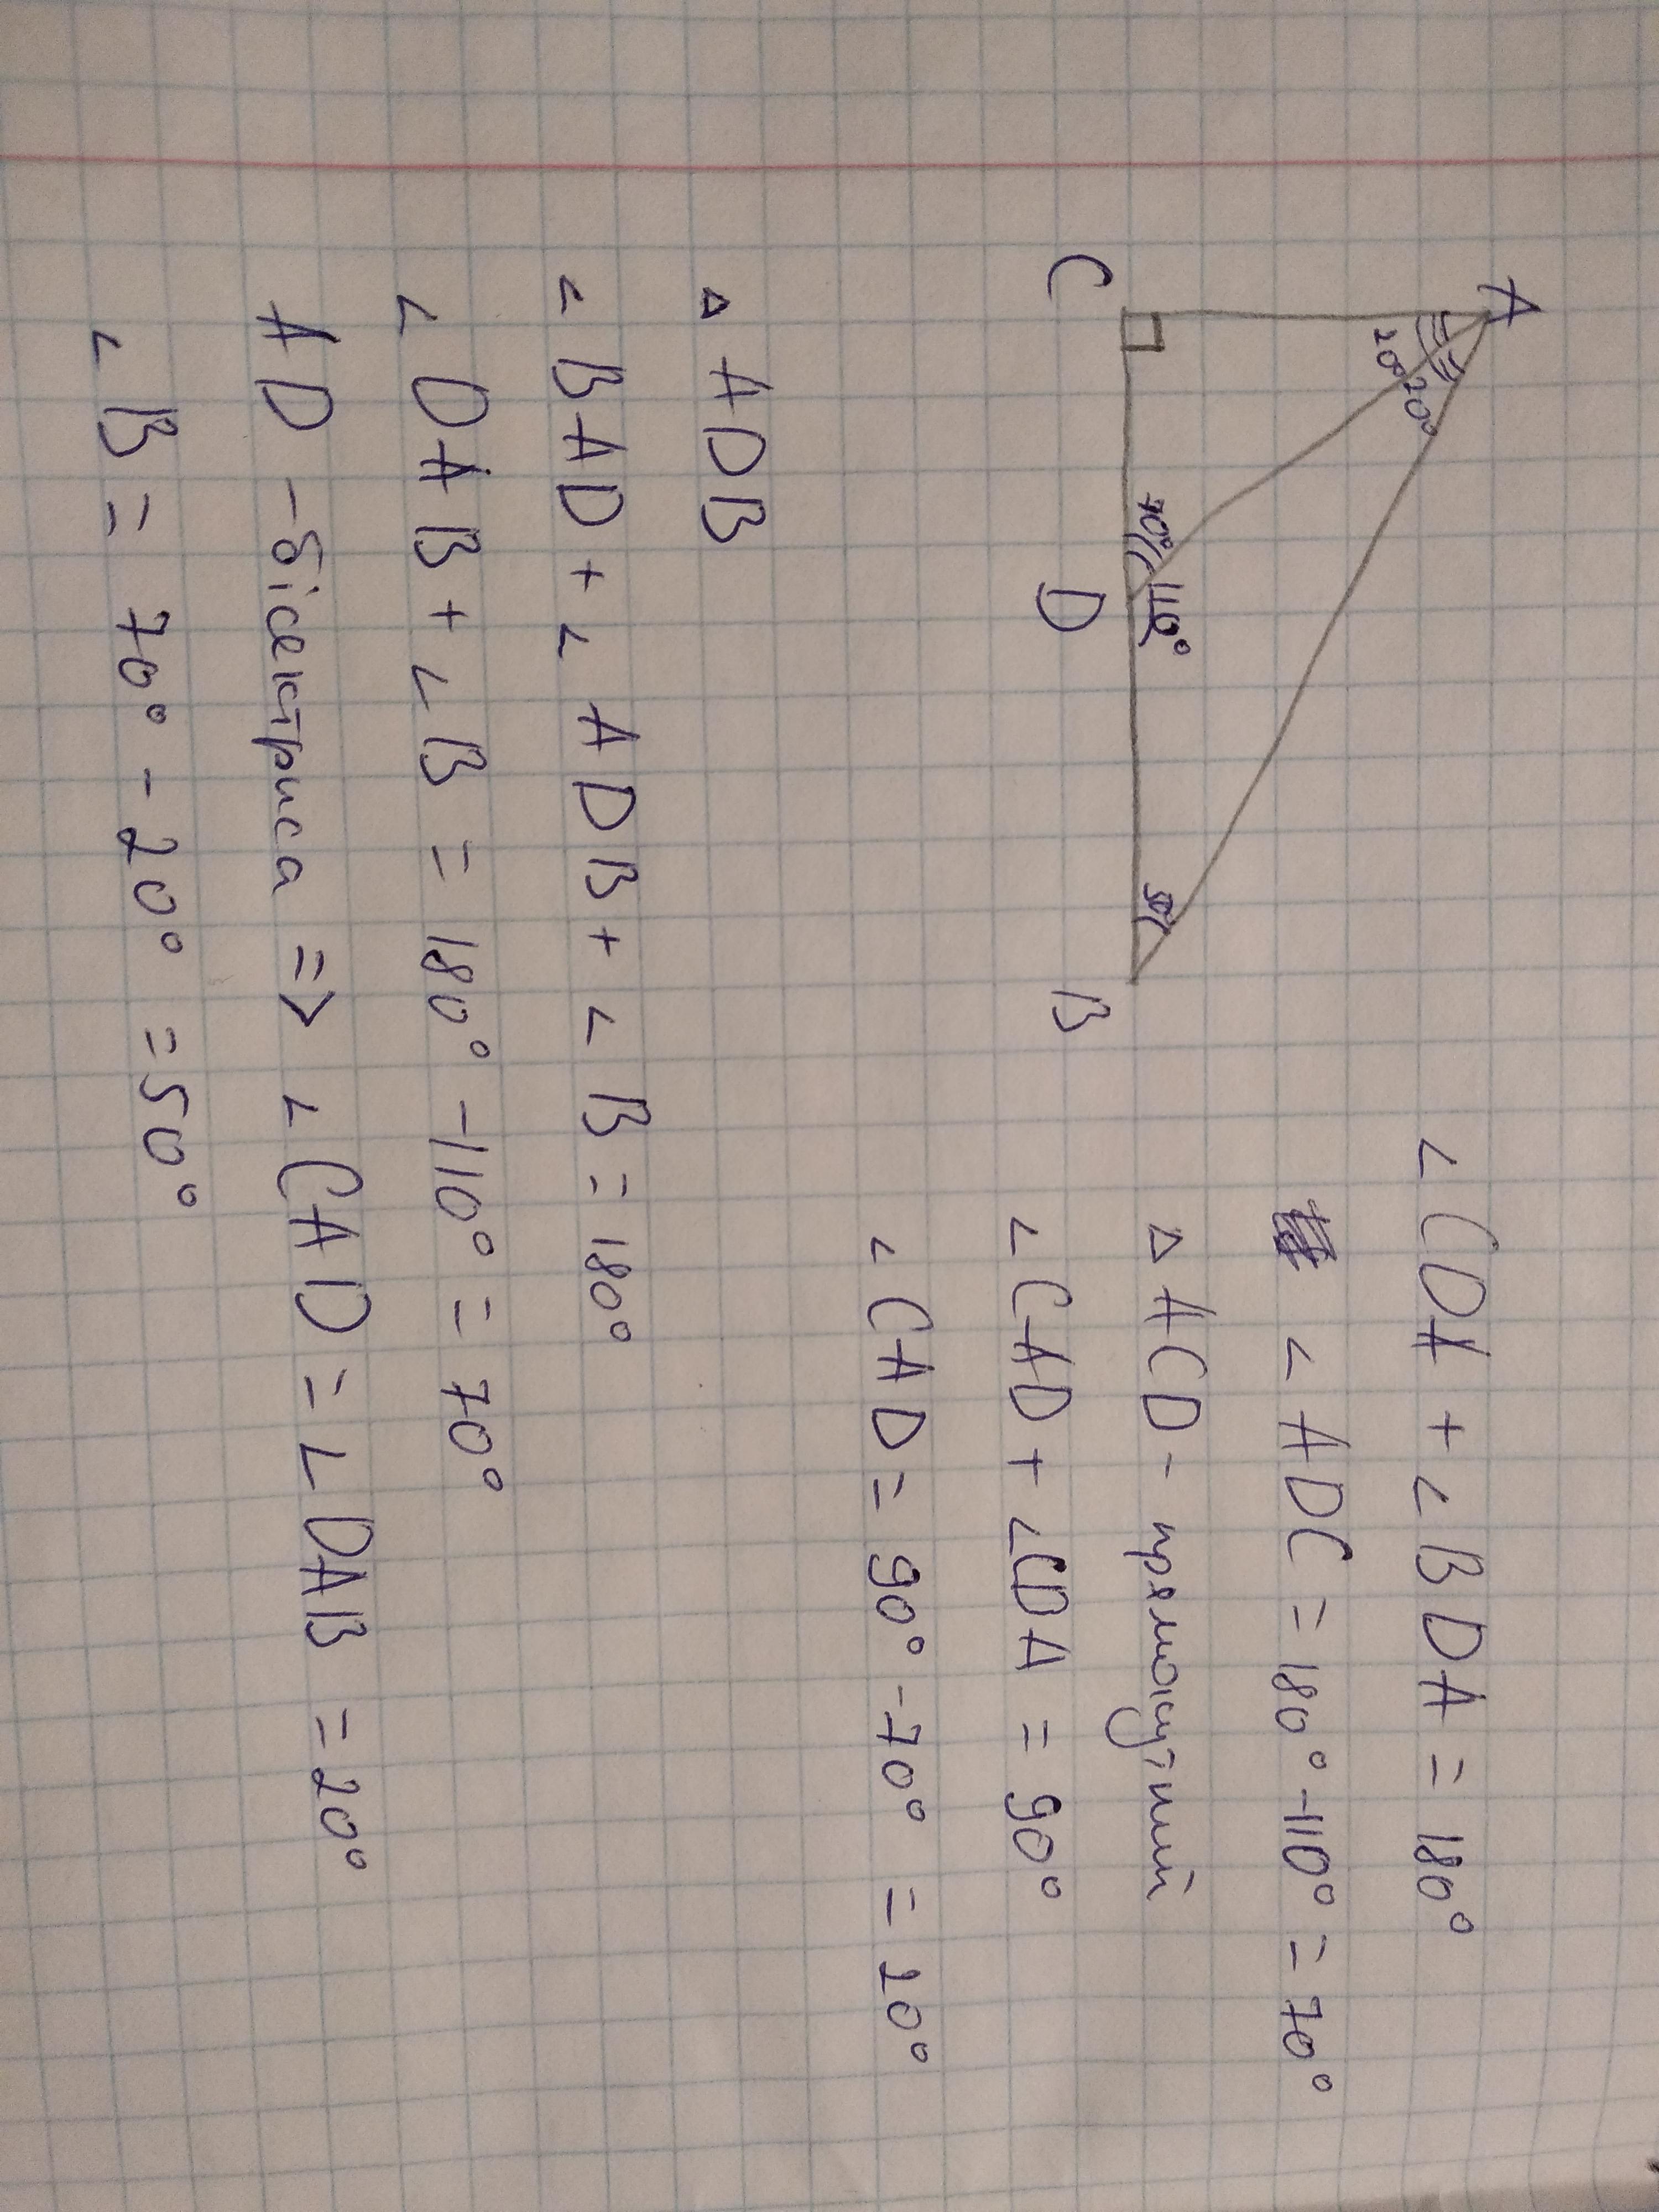 A
20° 20°
70° 110°
50°
C D B
∠CDA + ∠BDA = 180°
∠ADC = 180° - 110° = 70°
△ ACD - прямокутний
∠CAD + ∠CDA = 90°
∠CAD = 90° - 70° = 20°
△ ADB
∠BAD + ∠ADB + ∠B = 180°
∠DAB + ∠B = 180° - 110° = 70°
AD - бісектриса => ∠CAD = ∠DAB = 20°
∠B = 70° - 20° = 50°